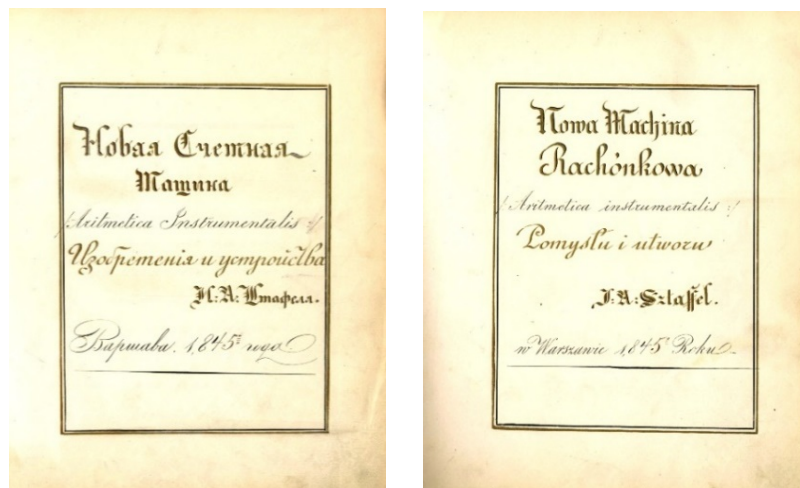 Новая Счетная
Машина
/: Aritmetica Instrumentalis :/
Изобретенія и устройства
И: А: Штафеля.
Варшава. 1845. года
Nowa Machina
Rachónkowa
/: Aritmetica instrumentalis :/
Pomysłu i utworu
J: A: Sztaffel.
w Warszawie 1845 Roku